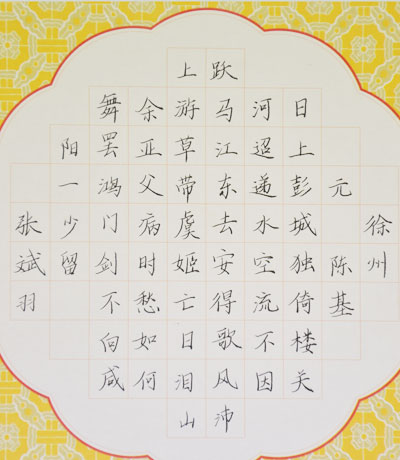 徐州
元陈基
日上彭城独倚楼关
河迢递水空流不因
跃马江东去安得歌风沛
上游草带虞姬亡日泪山
余亚父病时愁如何
舞罢鸿门剑不向咸
阳一少留
张斌羽